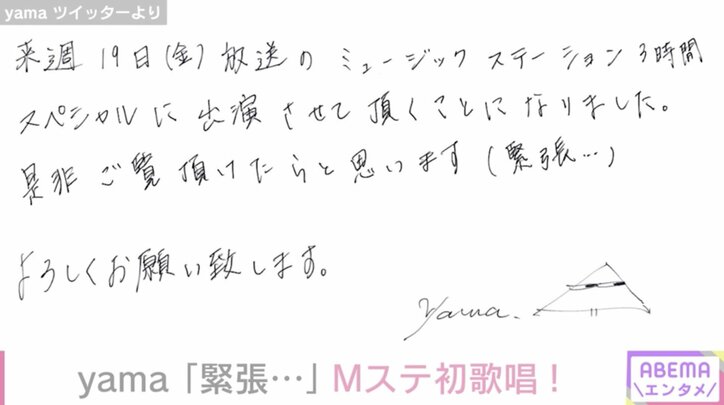 yama ツイッターより
来週19日(金)放送のミュージックステーション3時間
スペシャルに出演させて頂くことになりました。
是非ご覧頂けたらと思います(緊張…)
よろしくお願い致します。
yama.
yama「緊張…」Mステ初歌唱！
ABEMA
エンタメ